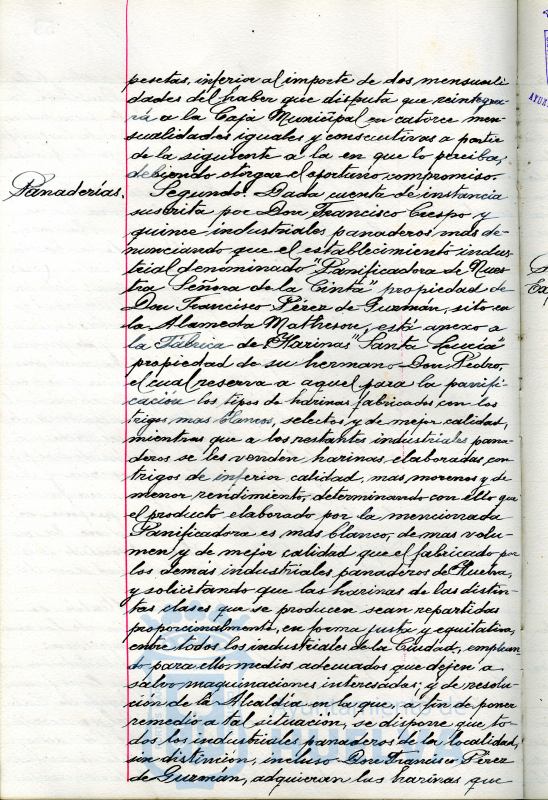 pesetas, inferior al importe de dos mensuali
dades del haber que disfruta que reintegra-
rá a la Caja Municipal en catorce men-
sualidades iguales y consecutivas a partir
de la siguiente a la en que lo perciba,
debiendo otorgar el oportuno compromiso.
Panaderías.
Segundo. Dada cuenta de instancia
suscrita por Don Francisco Crespo y
quince industriales panaderos mas de-
nunciando que el establecimiento indus-
trial denominado "Panificadora de Nues
tra Señora de la Cinta" propiedad de
Don Francisco Pérez de Guzmán, sito en
la Alameda Matheson, está anexo a
la Fábrica de Harinas "Santa Lucía"
propiedad de su hermano Don Pedro,
el cual reserva a aquel para la panifi-
cación los tipos de harinas fabricados con los
trigos mas blancos, selectos y de mejor calidad,
mientras que a los restantes industriales pana-
deros se les venden harinas elaboradas con
trigos de inferior calidad, mas morenos y de
menor rendimiento, determinando con ello que
el producto elaborado por la mencionada
Panificadora es mas blanco, de mas volu-
men y de mejor calidad que el fabricado por
los demás industriales panaderos de Huelva,
y solicitando que las harinas de las distin-
tas clases que se producen sean repartidas
proporcionalmente, en forma justa y equitativa,
entre todos los industriales de la Ciudad, emplean
do para ello medios adecuados que dejen a
salvo maquinaciones interesadas; y de resolu-
ción de la Alcaldía en la que a fin de poner
remedio a tal situacion, se dispone que to-
dos los industriales panaderos de la localidad,
sin distincion, incluso Don Francisco Pérez
de Guzmán, adquieran las harinas que
Ayuntamiento de
HUELVA